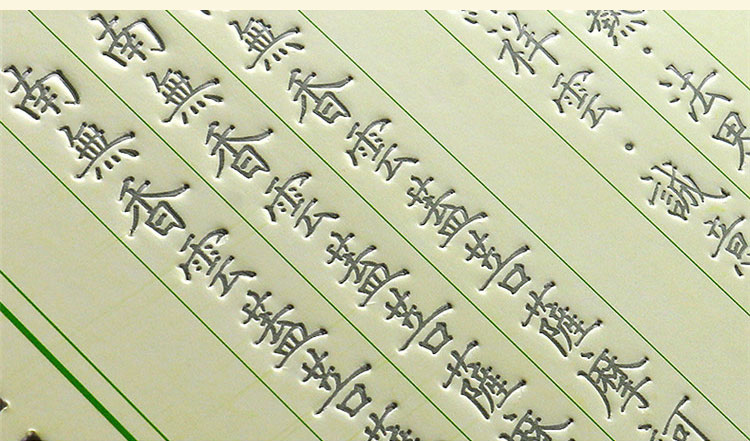 法
祥雲·誠意
無香雲蓋菩薩摩
南無香雲蓋菩薩
南無香雲蓋菩